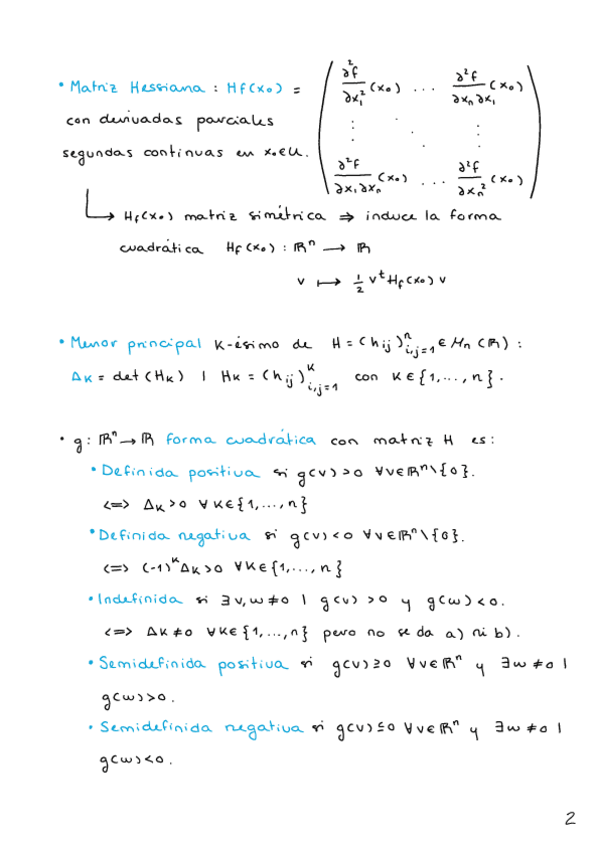 • Matriz Hessiana : Hf(x₀) = ( ∂²f/∂x₁² (x₀) ... ∂²f/∂xₙ∂x₁ (x₀)
con derivadas parciales ⋮ ⋱ ⋮
segundas continuas en x₀∈U. ∂²f/∂x₁∂xₙ (x₀) ... ∂²f/∂xₙ² (x₀) )
↳ Hf(x₀) matriz simétrica ⇒ induce la forma
cuadrática Hf(x₀) : ℝⁿ → ℝ
v ↦ ½ vᵗHf(x₀) v
• Menor principal k-ésimo de H = (hij)ⁿi,j=1 ∈ Mn(ℝ) :
Δk = det(Hk) | Hk = (hij)ᵏi,j=1 con k∈{1,...,n}.
• g: ℝⁿ→ℝ forma cuadrática con matriz H es:
• Definida positiva si g(v)>0 ∀v∈ℝⁿ\{0}.
<=> Δk>0 ∀k∈{1,...,n}
• Definida negativa si g(v)<0 ∀v∈ℝⁿ\{0}.
<=> (-1)ᵏΔk>0 ∀k∈{1,...,n}
• Indefinida si ∃v,w≠0 | g(v)>0 y g(w)<0.
<=> Δk≠0 ∀k∈{1,...,n} pero no se da a) ni b).
• Semidefinida positiva si g(v)≥0 ∀v∈ℝⁿ y ∃w≠0 |
g(w)>0.
• Semidefinida negativa si g(v)≤0 ∀v∈ℝⁿ y ∃w≠0 |
g(w)<0.
2